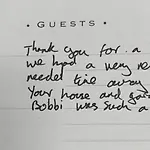 • GUESTS •
Thank you for a
we had a very re
needed time away
Your house and gar
Bobbi was such a